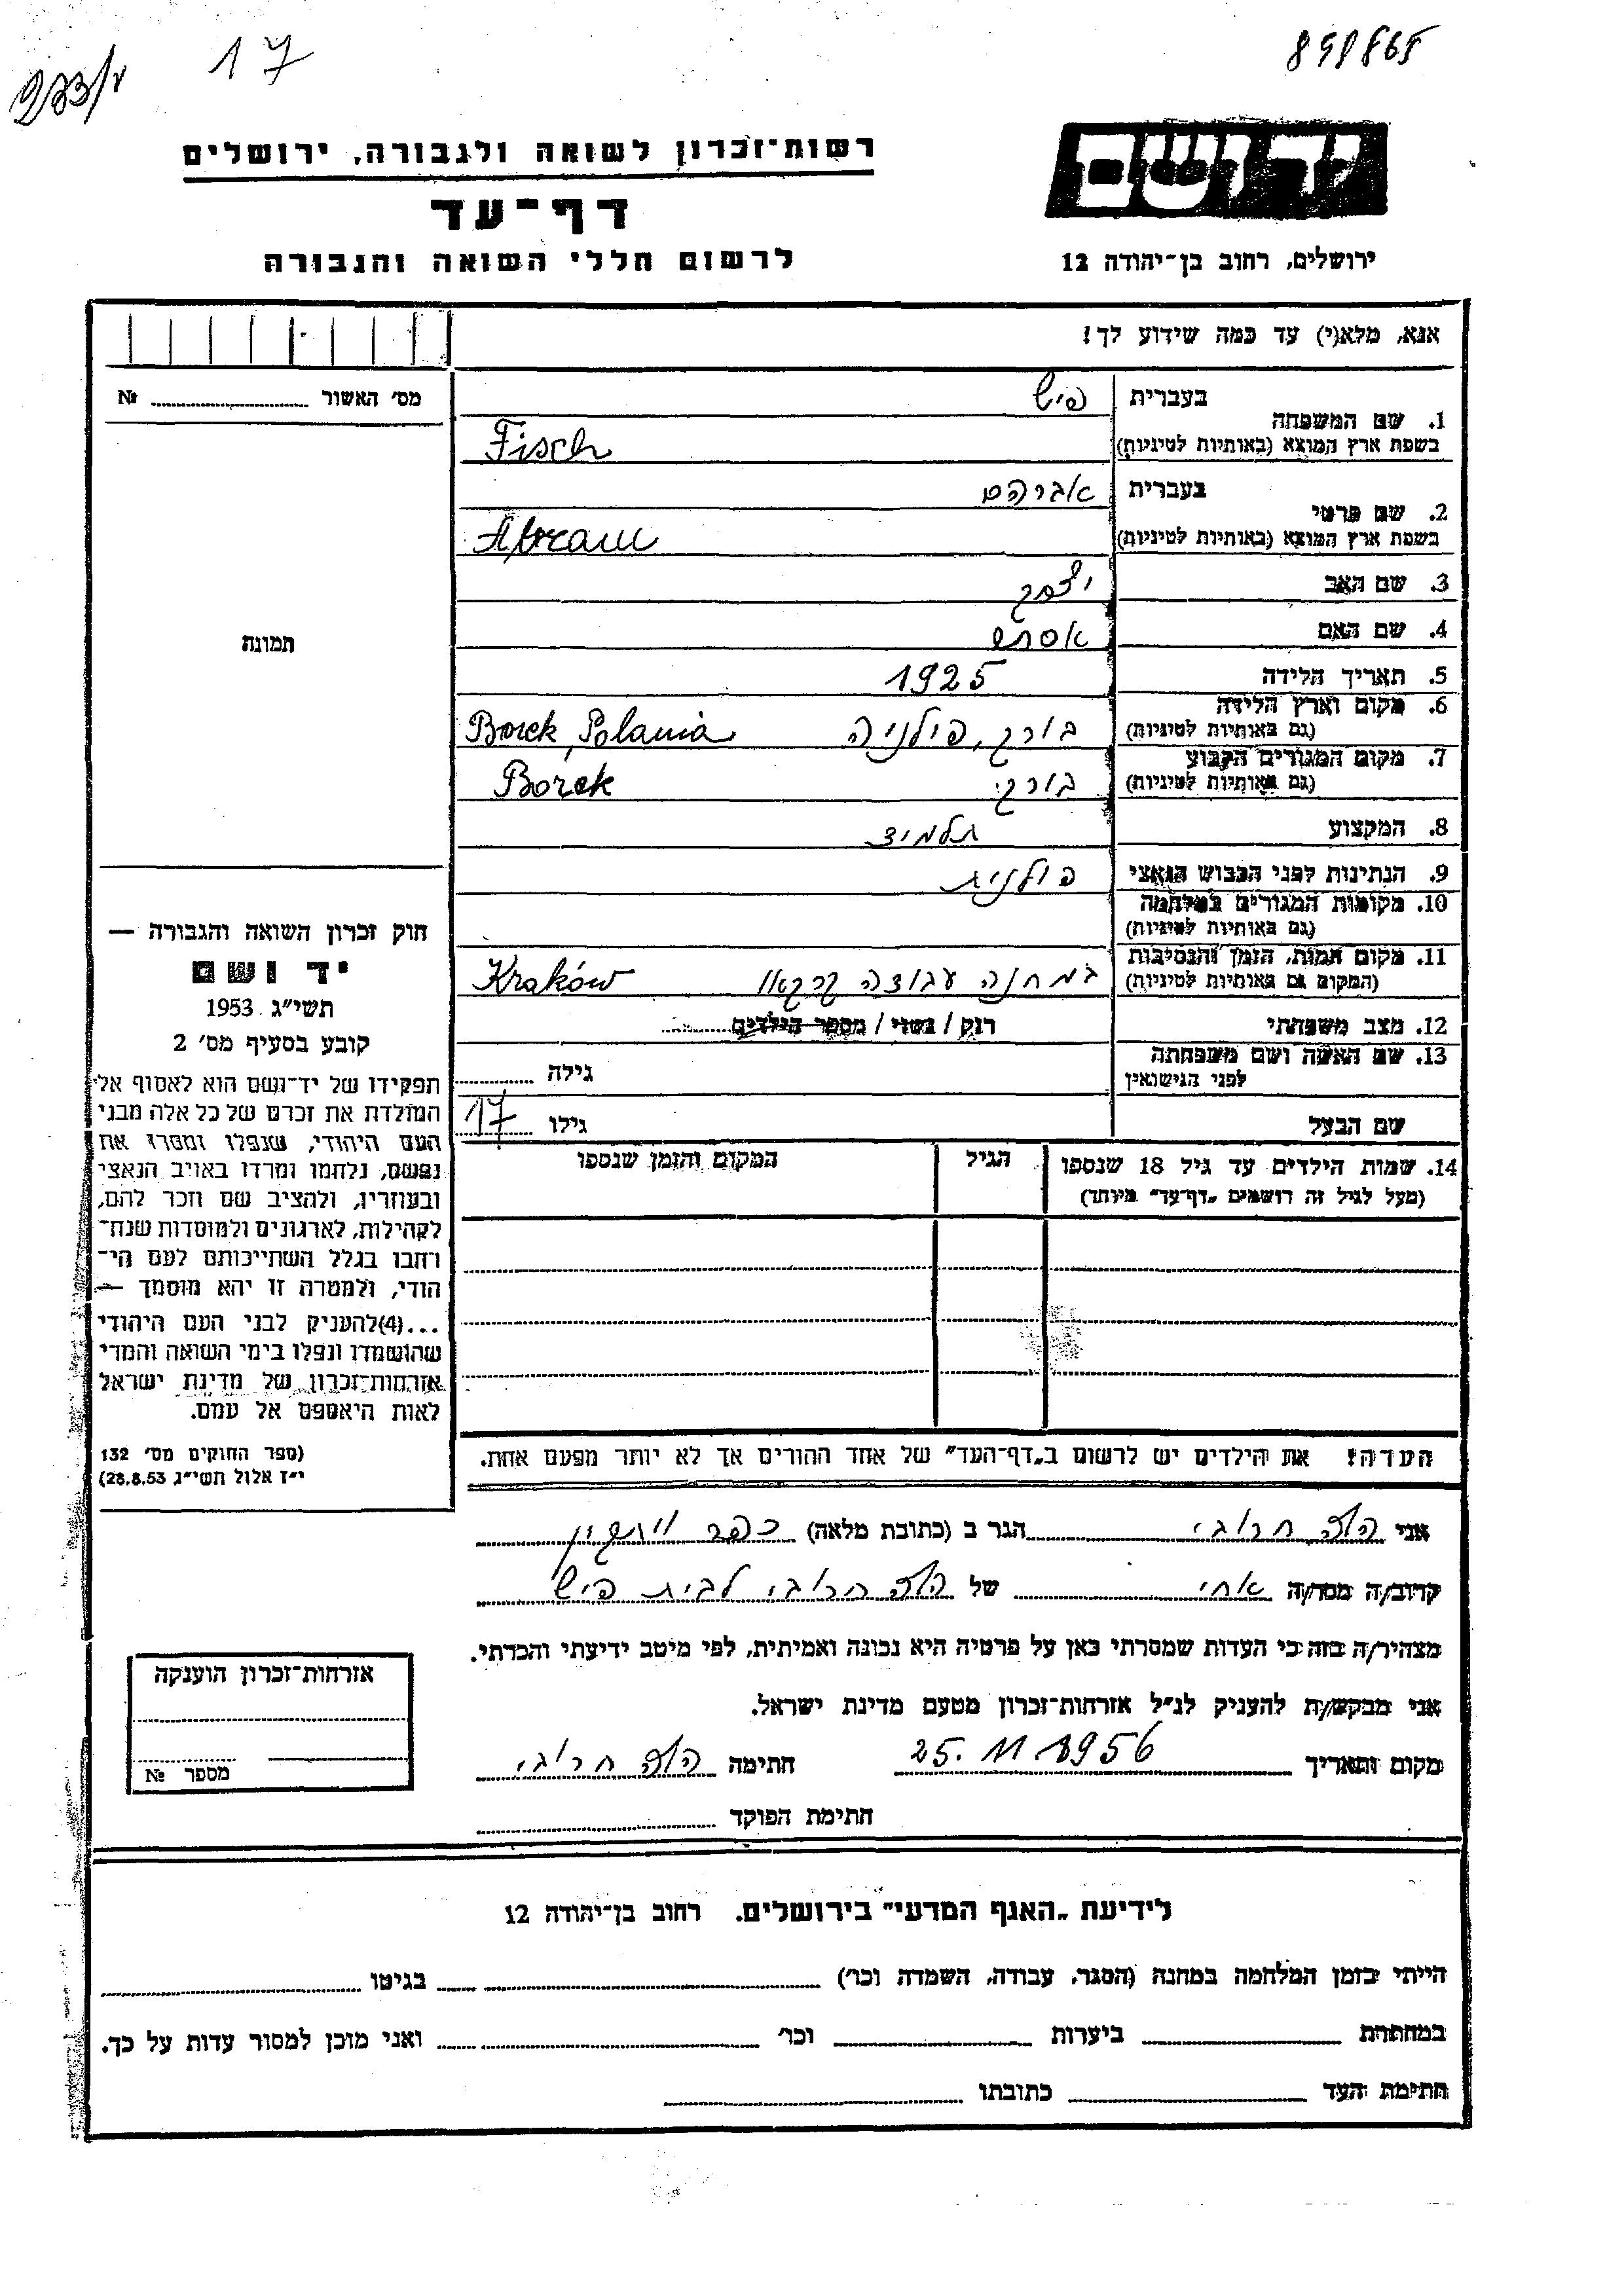 17
898865
ידושם
רשות־זכרון לשואה ולגבורה, ירושלים
דף־עד
לרשום חללי השואה והגבורה
ירושלים, רחוב בן־יהודה 12
אנא, מלא(י) עד כמה שידוע לך!
מס׳ האשור № 
1. שם המשפחה
בעברית פיש
בשפת ארץ המוצא (באותיות לטיניות) Fisch
2. שם פרטי
בעברית אברהם
בשפת ארץ המוצא (באותיות לטיניות) Abram
3. שם האב יצחק
4. שם האם אסתר
5. תאריך הלידה 1925
6. מקום וארץ הלידה
(גם באותיות לטיניות) בורק, פולניה Borek, Polania
7. מקום המגורים הקבוע
(גם באותיות לטיניות) בורק Borek
8. המקצוע תלמיד
9. הנתינות לפני הכבוש הנאצי פולנית
10. מקומות המגורים במלחמה
(גם באותיות לטיניות)
11. מקום המות, הזמן והנסיבות
(המקום גם באותיות לטיניות) במחנה עבודה קרקאו Kraków
12. מצב משפחתי רוק / נשוי / מספר הילדים
13. שם האשה ושם משפחתה
לפני הנישואין
גילה
שם הבעל
גילו 17
14. שמות הילדים עד גיל 18 שנספו
(מעל לגיל זה רושמים „דף־עד״ מיוחד)
הגיל
המקום והזמן שנספו
הערה! את הילדים יש לרשום ב„דף־העד״ של אחד ההורים אך לא יותר מפעם אחת.
תמונה
חוק זכרון השואה והגבורה —
יד ושם
תשי״ג 1953
קובע בסעיף מס׳ 2
תפקידו של יד־ושם הוא לאסוף אל
המולדת את זכרם של כל אלה מבני
העם היהודי, שנפלו ומסרו את
נפשם, נלחמו ומרדו באויב הנאצי
ובעוזריו, ולהציב שם וזכר להם,
לקהילות, לארגונים ולמוסדות שנח־
רחבו בגלל השתייכותם לעם הי־
הודי, ולמטרה זו יהא מוסמך —
...(4)להעניק לבני העם היהודי
שהושמדו ונפלו בימי השואה והמרי
אזרחות־זכרון של מדינת ישראל
לאות היאספם אל עמם.
(ספר החוקים מס׳ 132
י״ז אלול תשי״ג 28.8.53)
אני חרובי הגר ב (כתובת מלאה) כפר
קרוב/ה מסר/ה אחי של חרובי לבית פיש
מצהיר/ה בזה כי העדות שמסרתי כאן על פרטיה היא נכונה ואמיתית, לפי מיטב ידיעתי והכרתי.
אני מבקש/ת להעניק לנ״ל אזרחות־זכרון מטעם מדינת ישראל.
מקום ותאריך 25. 11 1956 חתימה חרובי
חתימת הפוקד
אזרחות־זכרון הוענקה
מספר №
לידיעת „האגף המדעי״ בירושלים. רחוב בן־יהודה 12
הייתי בזמן המלחמה במחנה (הסגר, עבודה, השמדה וכו׳) בגיטו
במחתרת ביערות וכו׳ ואני מוכן למסור עדות על כך.
חתימת העד כתובתו